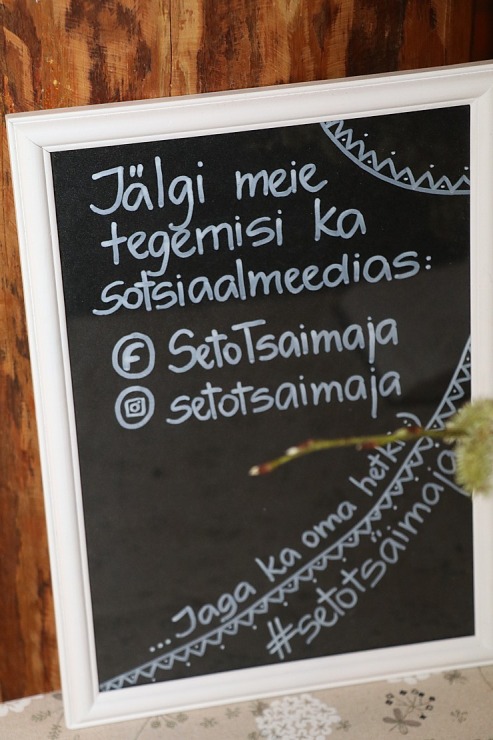 Jälgi meie
tegemisi ka
sotsiaalmeedias:
F SetoTsaimaja
setotsaimaja
...Jaga ka oma hetki
#setotsäimaja